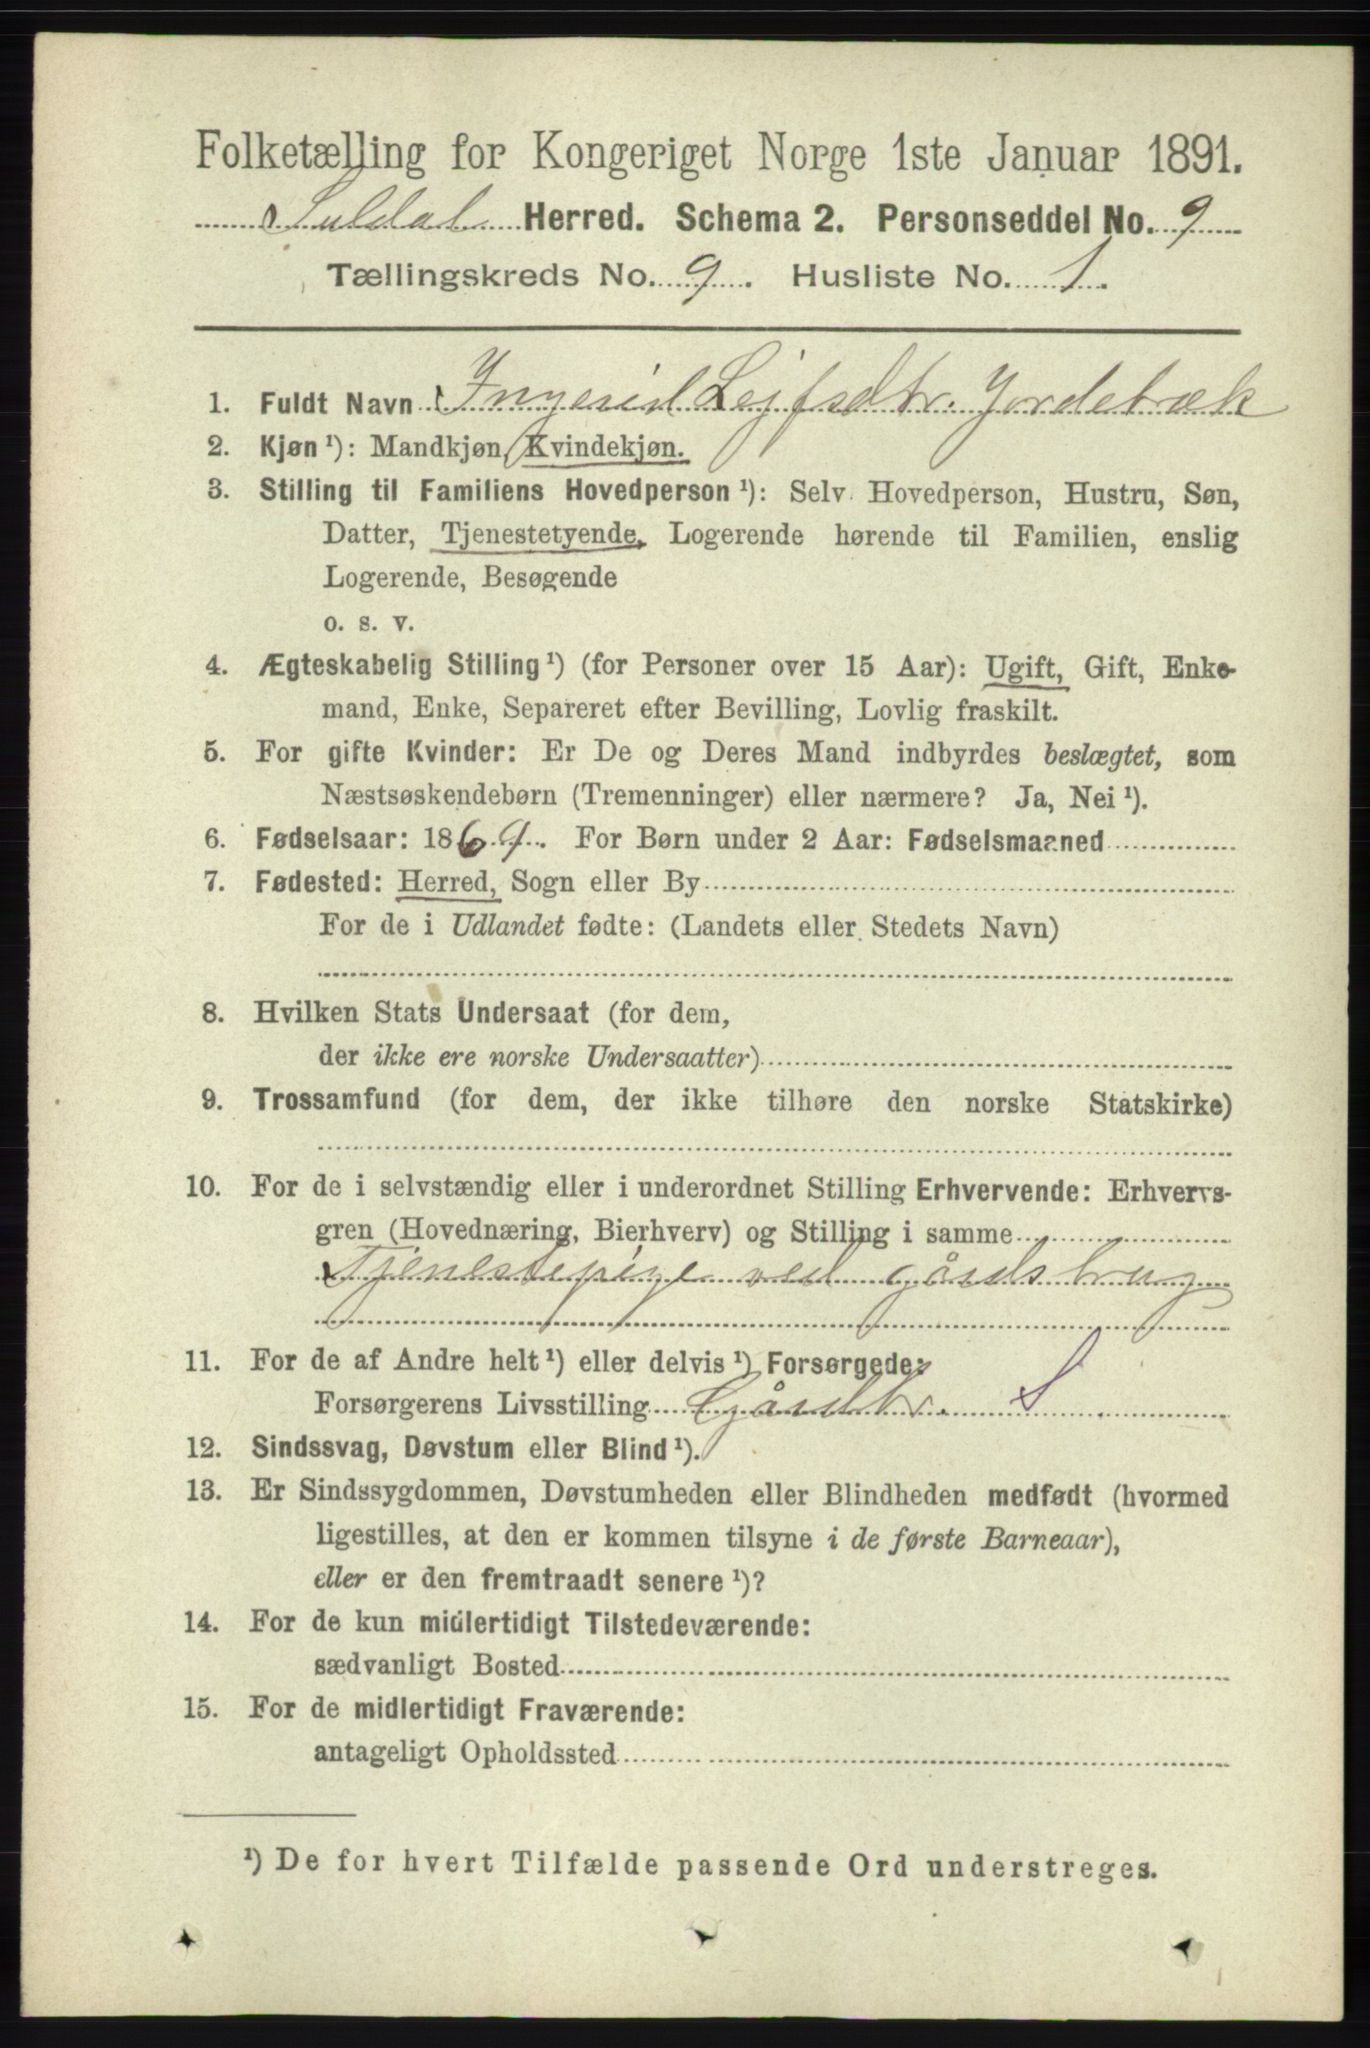 Folketælling for Kongeriget Norge 1ste Januar 1891.
Suldal Herred. Schema 2. Personseddel No. 9
Tællingskreds No. 9. Husliste No. 1.
1. Fuldt Navn Ingerid Lejfsdtr. Jordebræk
2. Kjøn¹): Mandkjøn, Kvindekjøn.
3. Stilling til Familiens Hovedperson¹): Selv Hovedperson, Hustru, Søn,
Datter, Tjenestetyende, Logerende hørende til Familien, enslig
Logerende, Besøgende
o. s. v.
4. Ægteskabelig Stilling¹) (for Personer over 15 Aar): Ugift, Gift, Enke-
mand, Enke, Separeret efter Bevilling, Lovlig fraskilt.
5. For gifte Kvinder: Er De og Deres Mand indbyrdes beslægtet, som
Næstsøskendebørn (Tremenninger) eller nærmere? Ja, Nei¹).
6. Fødselsaar: 1869. For Børn under 2 Aar: Fødselsmaaned
7. Fødested: Herred, Sogn eller By
For de i Udlandet fødte: (Landets eller Stedets Navn)
8. Hvilken Stats Undersaat (for dem,
der ikke ere norske Undersaatter)
9. Trossamfund (for dem, der ikke tilhøre den norske Statskirke)
10. For de i selvstændig eller i underordnet Stilling Erhvervende: Erhvervs-
gren (Hovednæring, Bierhverv) og Stilling i samme
Tjenestepige ved gårdsbrug
11. For de af Andre helt¹) eller delvis¹) Forsørgede:
Forsørgerens Livsstilling Gårdbr. S
12. Sindssvag, Døvstum eller Blind¹).
13. Er Sindssygdommen, Døvstumheden eller Blindheden medfødt (hvormed
ligestilles, at den er kommen tilsyne i de første Barneaar),
eller er den fremtraadt senere¹)?
14. For de kun midlertidigt Tilstedeværende:
sædvanligt Bosted
15. For de midlertidigt Fraværende:
antageligt Opholdssted
¹) De for hvert Tilfælde passende Ord understreges.